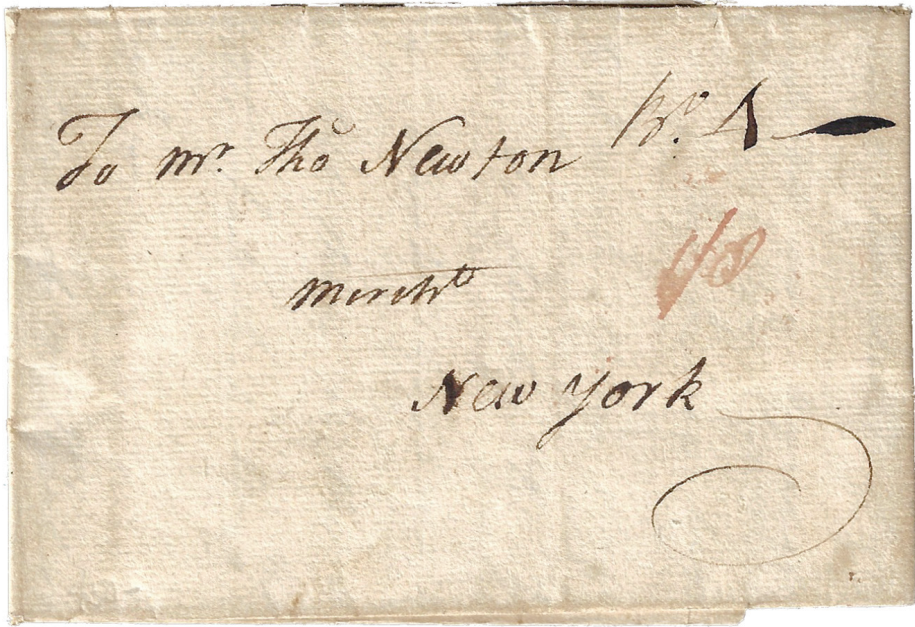 To Mr. Tho Newton No. 4
1/8
Mercht
New York